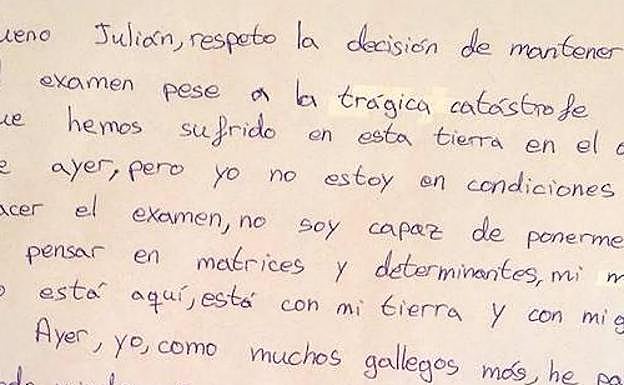 Julián, respeto la decisión de mantener
examen pese a la trágica catástrofe
hemos sufrido en esta tierra en el
ayer, pero yo no estoy en condiciones
el examen, no soy capaz de ponerme
pensar en matrices y determinantes, mi
está aquí, está con mi tierra y con mi
Ayer, yo, como muchos gallegos más, he